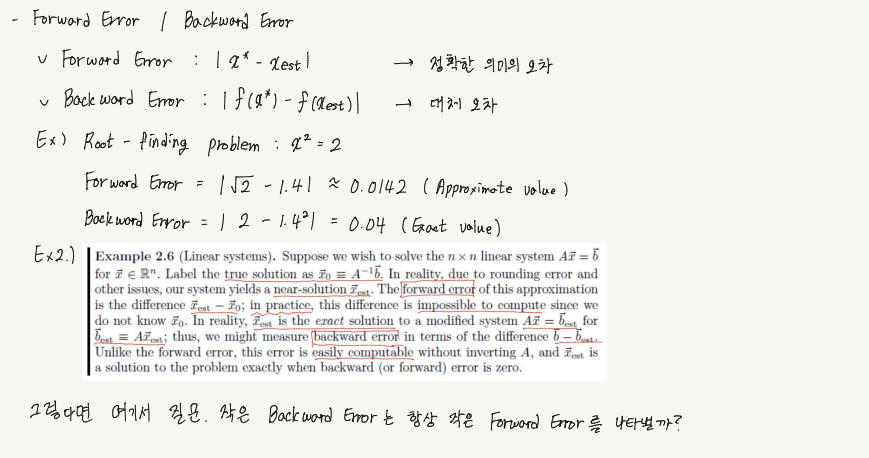 - Forward Error / Backward Error
v Forward Error : | x* - xest | → 정확한 의미의 오차
v Backward Error : | f(x*) - f(xest) | → 대체 오차
Ex) Root - finding problem : x² = 2
Forward Error = | √2 - 1.4 | ≈ 0.0142 ( Approximate value )
Backward Error = | 2 - 1.4² | = 0.04 ( Exact value )
Ex2.)
Example 2.6 (Linear systems). Suppose we wish to solve the n × n linear system Ax⃗ = b⃗
for x⃗ ∈ ℝⁿ. Label the true solution as x⃗₀ ≡ A⁻¹b⃗. In reality, due to rounding error and
other issues, our system yields a near-solution x⃗est. The forward error of this approximation
is the difference x⃗est − x⃗₀; in practice, this difference is impossible to compute since we
do not know x⃗₀. In reality, x⃗est is the exact solution to a modified system Ax⃗ = b⃗est for
b⃗est ≡ Ax⃗est; thus, we might measure backward error in terms of the difference b⃗ − b⃗est.
Unlike the forward error, this error is easily computable without inverting A, and x⃗est is
a solution to the problem exactly when backward (or forward) error is zero.
그렇다면 여기서 질문. 작은 Backward Error는 항상 작은 Forward Error를 나타낼까?